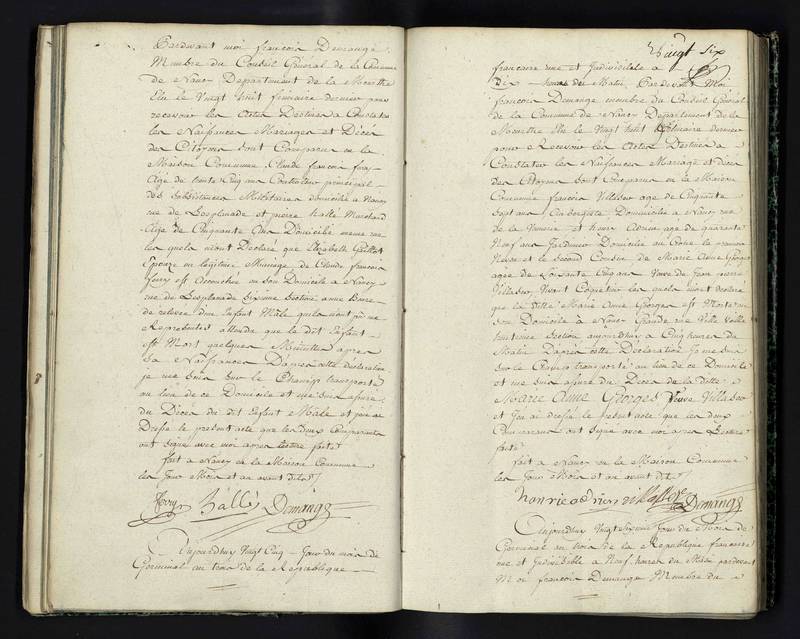 Pardevant moi françois Demange
Membre du Conseil General de la Commune
de Nancy Departement de la Meurthe
Elu le Vingt huit frimaire dernier pour
recevoir les Actes Destinés a Constater
les Naissances Mariages et Décés
des Citoyens sont Comparus en la
Maison Commune Claude françois
Agé de trente Cinq ans Controleur principal
des Subsistances Militaires domicilié a Nancy
rue de Lesplanade et pierre Marchand
Agé de Cinquante ans Domicilié meme rue
les quels mont Declaré que Elizabeth
Epouze en legitime Mariage de Claude françois
est Accouchée en son Domicile a Nancy
rue de Lesplanade Sixieme Section
de relevée dun Enfant Mâle quils nont pu me
Representer attendu que le dit Enfant
est Mort quelques Minuttes apres
Sa Naissance Dapres cette déclaration
je me suis Sur le Champs transporté
au lieu de ce Domicile et me suis assuré
du Déces du dit Enfant Male et jen ai
Dressé le present acte que les deux Comparants
ont Signé avec moi apres lecture faite
fait a Nancy en la Maison Commune
les Jour Mois et an avant dits
Demange
Aujourdhuy Vingt Cinq Jour du mois de
Germinal an trois de la Republique
Vingt Six
francaise une et Indivisible a
Dix heures du Matin Pardevant Moi
francois Demange membre du Conseil General
de la Commune de Nancy Departement de la
Meurthe Elu le Vingt huit frimaire dernier
pour Recevoir les Actes Destinés a
Constater les Naissances Mariage et déces
des Citoyens Sont Comparus en la Maison
Commune francois Villaser age de Cinquante
Sept ans Domicilié a Nancy rue
de la et henri age de quarante
Neuf ans Jardinier Domicilié au le premier
Neveu et le Second Cousin de Marie Anne Georges
agée de Soixante Cinq ans Veuve de Jean
Villaser Vivant les quels mont declaré
que la ditte Marie Anne Georges est Morte en
Son Domicile a Nancy Grande rue Ville Vieille
Section aujourdhuy a Cinq heures du
Matin Dapres cette Déclaration Je me suis
Sur le Champs transporté au lieu de ce Domicile
et me suis assuré du Déces de la ditte
Marie Anne Georges Veuve Villaser
et Jen ai dressé le present acte que les deux
Comparans ont Signé avec moi apres Lecture
faite
fait a Nancy en la Maison Commune
les Jour Mois et an avant dits
Demange
Aujourdhuy Vingt Sixieme Jour du Mois de
Germinal an trois de la Republique francaise
une et Indivisible a Neuf heures du Matin pardevant
Moi francois Demange Membre du